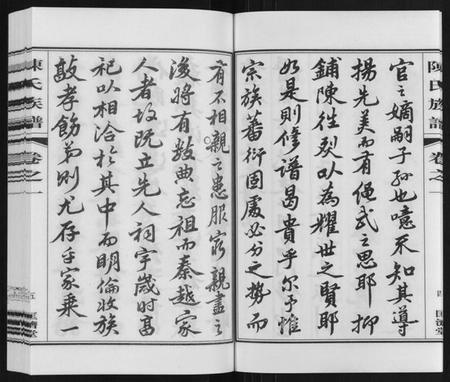 陳氏族譜
卷之一
官之嫡嗣子孫也噫不知其導
揚先美而有繩武之思耶抑
鋪陳往烈以為耀世之賢耶
如是則修譜曷貴乎尔予惟
宗族蕃衍固處必分之勢而
有不相親之患服窮親盡之
後將有数典忘祖而秦越家
人者故既立先人祠宇歲時享
祀以相洽於其中而明倫收族
敲孝飭弟則尤存乎家乘一
陳氏族譜
卷之一